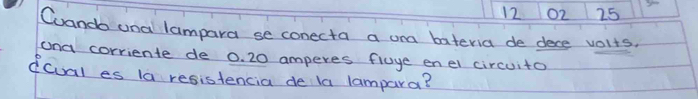 12 02 25
Cuando una lampara se conecta a una bateria de doce volts.
una corriente de 0.20 amperes fluye en el circuito
¿cual es la resistencia de la lampara?